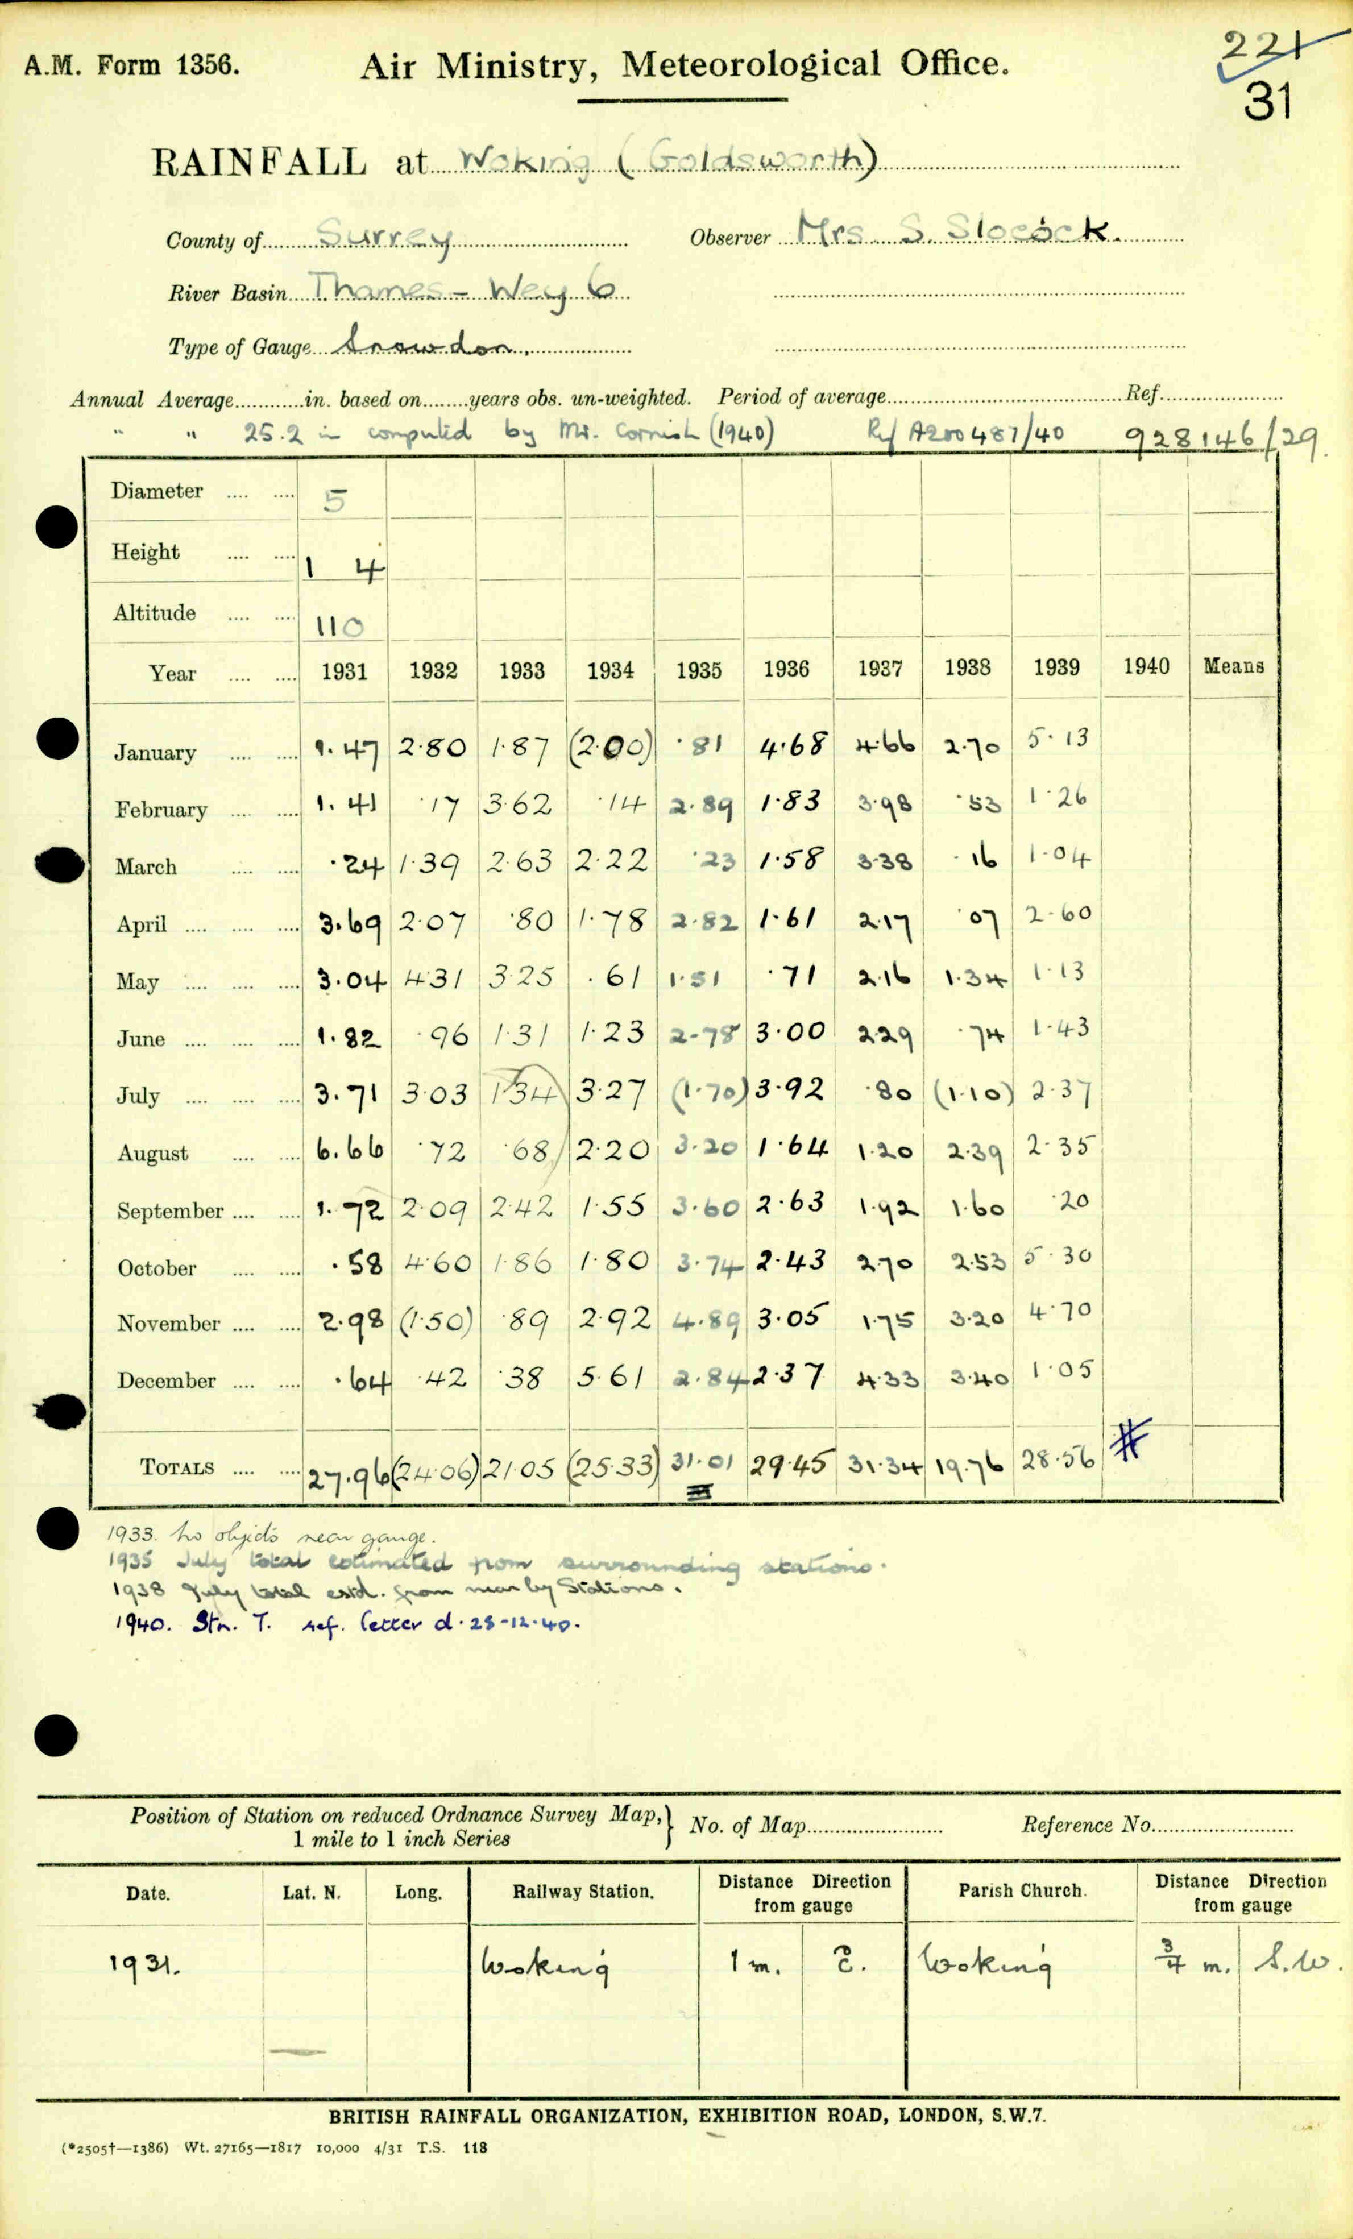 A.M. Form 1356. Air Ministry, Meteorological Office. 221
31
RAINFALL at Woking (Goldsworth)
County of Surrey Observer Mrs. S. Slocock.
River Basin Thames - Wey 6
Type of Gauge Snowdon.
Annual Average............in. based on........years obs. un-weighted. Period of average........................................Ref.....................
" " 25.2 in computed by Mr. Cornish (1940) Ref A200487/40 928146/29.
Diameter .... .... 5
Height .... .... 1 4
Altitude .... .... 110
Year .... .... 1931 1932 1933 1934 1935 1936 1937 1938 1939 1940 Means
January .... .... 1.47 2.80 1.87 (2.00) .81 4.68 4.66 2.70 5.13
February .... .... 1.41 .17 3.62 .14 2.89 1.83 3.98 .53 1.26
March .... .... .24 1.39 2.63 2.22 .23 1.58 3.38 .16 1.04
April .... .... .... 3.69 2.07 .80 1.78 2.82 1.61 2.17 .07 2.60
May .... .... .... 3.04 4.31 3.25 .61 1.51 .71 2.16 1.34 1.13
June .... .... .... 1.82 .96 1.31 1.23 2.78 3.00 2.29 .74 1.43
July .... .... .... 3.71 3.03 1.34 3.27 (1.70) 3.92 .80 (1.10) 2.37
August .... .... 6.66 .72 .68 2.20 3.20 1.64 1.20 2.39 2.35
September .... .... 1.72 2.09 2.42 1.55 3.60 2.63 1.92 1.60 .20
October .... .... .58 4.60 1.86 1.80 3.74 2.43 2.70 2.53 5.30
November .... .... 2.98 (1.50) .89 2.92 4.89 3.05 1.75 3.20 4.70
December .... .... .64 .42 .38 5.61 2.84 2.37 4.33 3.40 1.05
TOTALS .... .... 27.96 (24.06) 21.05 (25.33) 31.01 29.45 31.34 19.76 28.56 #
1933. No objects near gauge.
1935 July total estimated from surrounding stations.
1938 July total estd. from near by Stations.
1940. Stn. T. ref. letter d. 28-12-40.
Position of Station on reduced Ordnance Survey Map, 1 mile to 1 inch Series } No. of Map........................ Reference No.........................
Date. Lat. N. Long. Railway Station. Distance Direction from gauge Parish Church. Distance Direction from gauge
1931. Woking 1 m. E. Woking 3/4 m. S.W.
BRITISH RAINFALL ORGANIZATION, EXHIBITION ROAD, LONDON, S.W.7.
(*2505†—1386) Wt. 27165—1817 10,000 4/31 T.S. 118